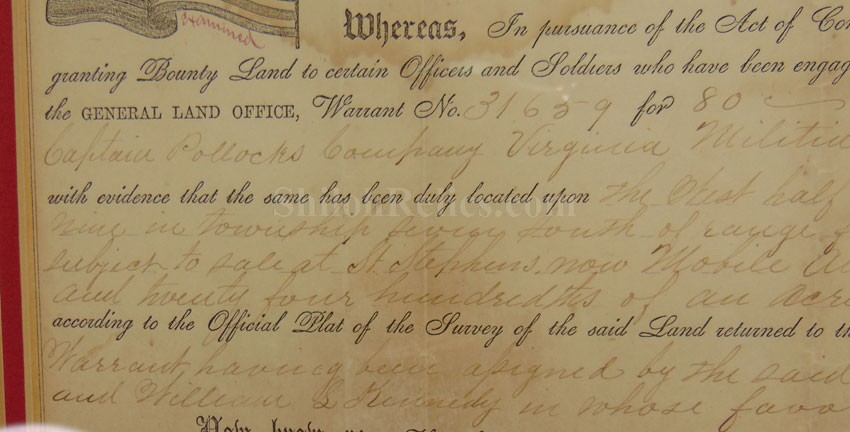 Hammond
Whereas, In pursuance of the Act of Con
granting Bounty Land to certain Officers and Soldiers who have been engag
the GENERAL LAND OFFICE, Warrant No. 31659 for 80
Captain Pollocks Company Virginia Militia
with evidence that the same has been duly located upon the West half
nine in township seven south of range f
subject to sale at St. Stephens, now Mobile Al
and twenty four hundredths of an acre
according to the Official Plat of the Survey of the said Land returned to th
Warrant, having been assigned by the said
and William S Kennedy in whose favo
Now know
ShilohRelics.com